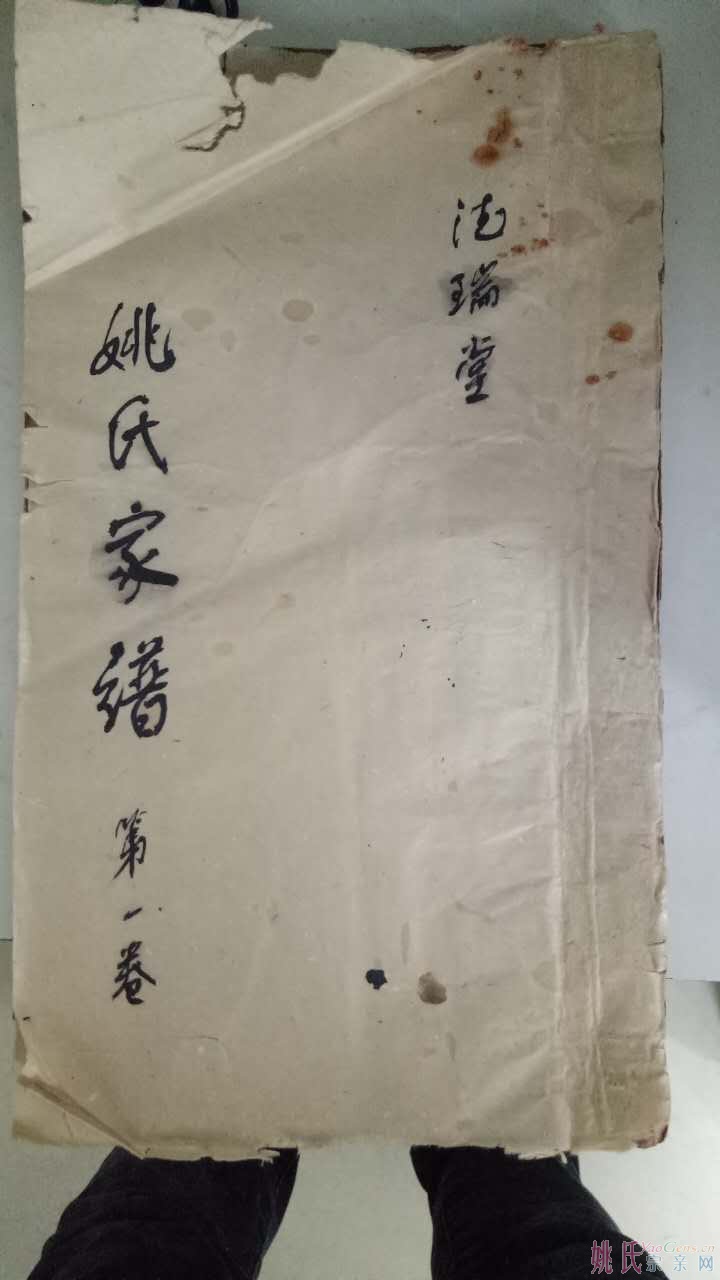 德瑞堂
姚氏家谱 第一卷
姚氏宗亲网
YaoGens.cn